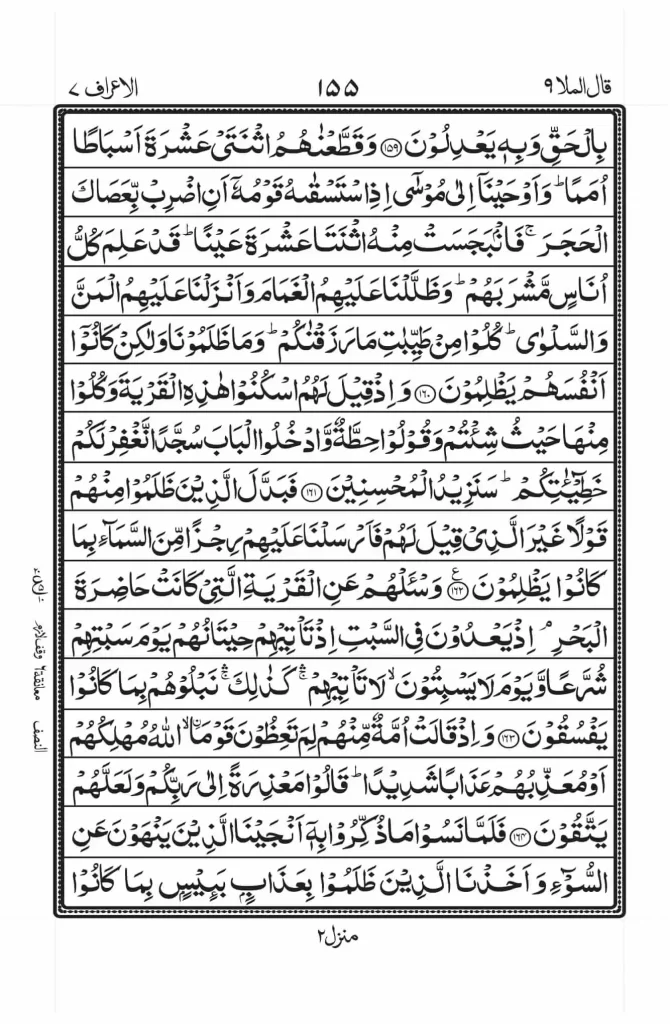 قال الملا ۹
۱۵۵
الاعراف ۷
بِالۡحَقِّ وَبِهٖ يَعۡدِلُوۡنَ ﴿۱۵۹﴾ وَقَطَّعۡنٰهُمُ اثۡنَتَىۡ عَشۡرَةَ اَسۡبَاطًا
اُمَمًا‌ ؕ وَاَوۡحَيۡنَاۤ اِلٰى مُوۡسٰٓى اِذِ اسۡتَسۡقٰٮهُ قَوۡمُهٗۤ اَنِ اضۡرِبْ بِّعَصَاكَ
الۡحَجَرَ‌ ۚ فَانۡۢبَجَسَتۡ مِنۡهُ اثۡنَتَا عَشۡرَةَ عَيۡنًا‌ ؕ قَدۡ عَلِمَ كُلُّ
اُنَاسٍ مَّشۡرَبَهُمۡ‌ ؕ وَظَلَّلۡنَا عَلَيۡهِمُ الۡغَمَامَ وَاَنۡزَلۡنَا عَلَيۡهِمُ الۡمَنَّ
وَالسَّلۡوٰى‌ ؕ كُلُوۡا مِنۡ طَيِّبٰتِ مَا رَزَقۡنٰكُمۡ‌ ؕ وَمَا ظَلَمُوۡنَا وَلٰـكِنۡ كَانُوۡۤا
اَنۡفُسَهُمۡ يَظۡلِمُوۡنَ ﴿۱۶۰﴾ وَاِذۡ قِيۡلَ لَهُمُ اسۡكُنُوۡا هٰذِهِ الۡقَرۡيَةَ وَكُلُوۡا
مِنۡهَا حَيۡثُ شِئۡتُمۡ وَقُوۡلُوۡا حِطَّةٌ وَّادۡخُلُوا الۡبَابَ سُجَّدًا نَّـغۡفِرۡ لَـكُمۡ
خَطِيْٓــٰٔــتِكُمۡ‌ ؕ سَنَزِيۡدُ الۡمُحۡسِنِيۡنَ ﴿۱۶۱﴾ فَبَدَّلَ الَّذِيۡنَ ظَلَمُوۡا مِنۡهُمۡ
قَوۡلًا غَيۡرَ الَّذِىۡ قِيۡلَ لَهُمۡ فَاَرۡسَلۡنَا عَلَيۡهِمۡ رِجۡزًا مِّنَ السَّمَآءِ بِمَا
كَانُوۡا يَظۡلِمُوۡنَ ﴿۱۶۲﴾ ع وَسۡــَٔلۡهُمۡ عَنِ الۡقَرۡيَةِ الَّتِىۡ كَانَتۡ حَاضِرَةَ
الۡبَحۡرِ‌ ۘ اِذۡ يَعۡدُوۡنَ فِى السَّبۡتِ اِذۡ تَاۡتِيۡهِمۡ حِيۡتَانُهُمۡ يَوۡمَ سَبۡتِهِمۡ
شُرَّعًا وَّيَوۡمَ لَا يَسۡبِتُوۡنَ‌ ۙ لَا تَاۡتِيۡهِمۡ‌ ۛۚ كَذٰلِكَ ‌ۛۚ نَبۡلُوۡهُمۡ بِمَا كَانُوۡا
يَفۡسُقُوۡنَ ﴿۱۶۳﴾ وَاِذۡ قَالَتۡ اُمَّةٌ مِّنۡهُمۡ لِمَ تَعِظُوۡنَ قَوۡمَاْ ‌ ۙ اۨللّٰهُ مُهۡلِكُهُمۡ
اَوۡ مُعَذِّبُهُمۡ عَذَابًا شَدِيۡدًا‌ ؕ قَالُوۡا مَعۡذِرَةً اِلٰى رَبِّكُمۡ وَلَعَلَّهُمۡ
يَتَّقُوۡنَ ﴿۱۶۴﴾ فَلَمَّا نَسُوۡا مَا ذُكِّرُوۡا بِهٖۤ اَنۡجَيۡنَا الَّذِيۡنَ يَنۡهَوۡنَ عَنِ
السُّوۡۤءِ وَاَخَذۡنَا الَّذِيۡنَ ظَلَمُوۡا بِعَذَابٍۭ بَــِٕيۡسٍۭ بِمَا كَانُوۡا
معانقة ۶ وقف لازم
النصف
منزل ۲